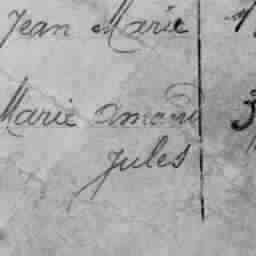 Jean Marie
Marie Amand 3
Jules